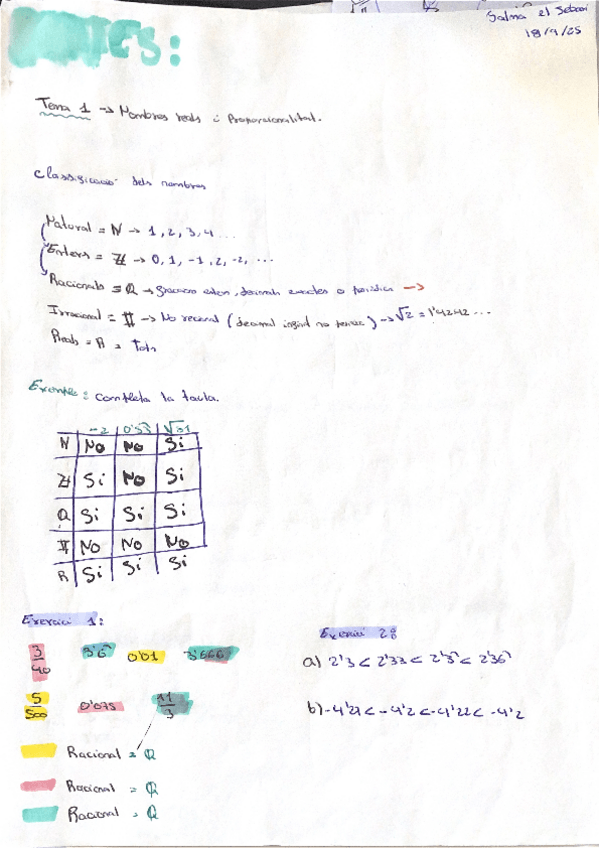 Salma el
18/9/25
MATES:
Tema 1 → Nombres reals i Proporcionalitat.
Classificació dels nombres
Natural = N → 1, 2, 3, 4 ...
Enters = Z → 0, 1, -1, 2, -2, ...
Racionals = Q → decimals exactes o →
Irracional = II → No racional (decimal no ) → √2 = 1'4242 ...
Reals = R = tots
Exemple: completa la taula.
-2 0'53
N No No Si
Z Si No Si
Q Si Si Si
II No No No
R Si Si Si
Exercici 1:
3/40 3'6 0'01 3'666
5/500 0'075 11/3
Racional = Q
Racional = Q
Racional = Q
Exercici 2:
a) 2'3 < 2'33 < 2'3 < 2'36
b) -4'21 < -4'2 < -4'22 < -4'2